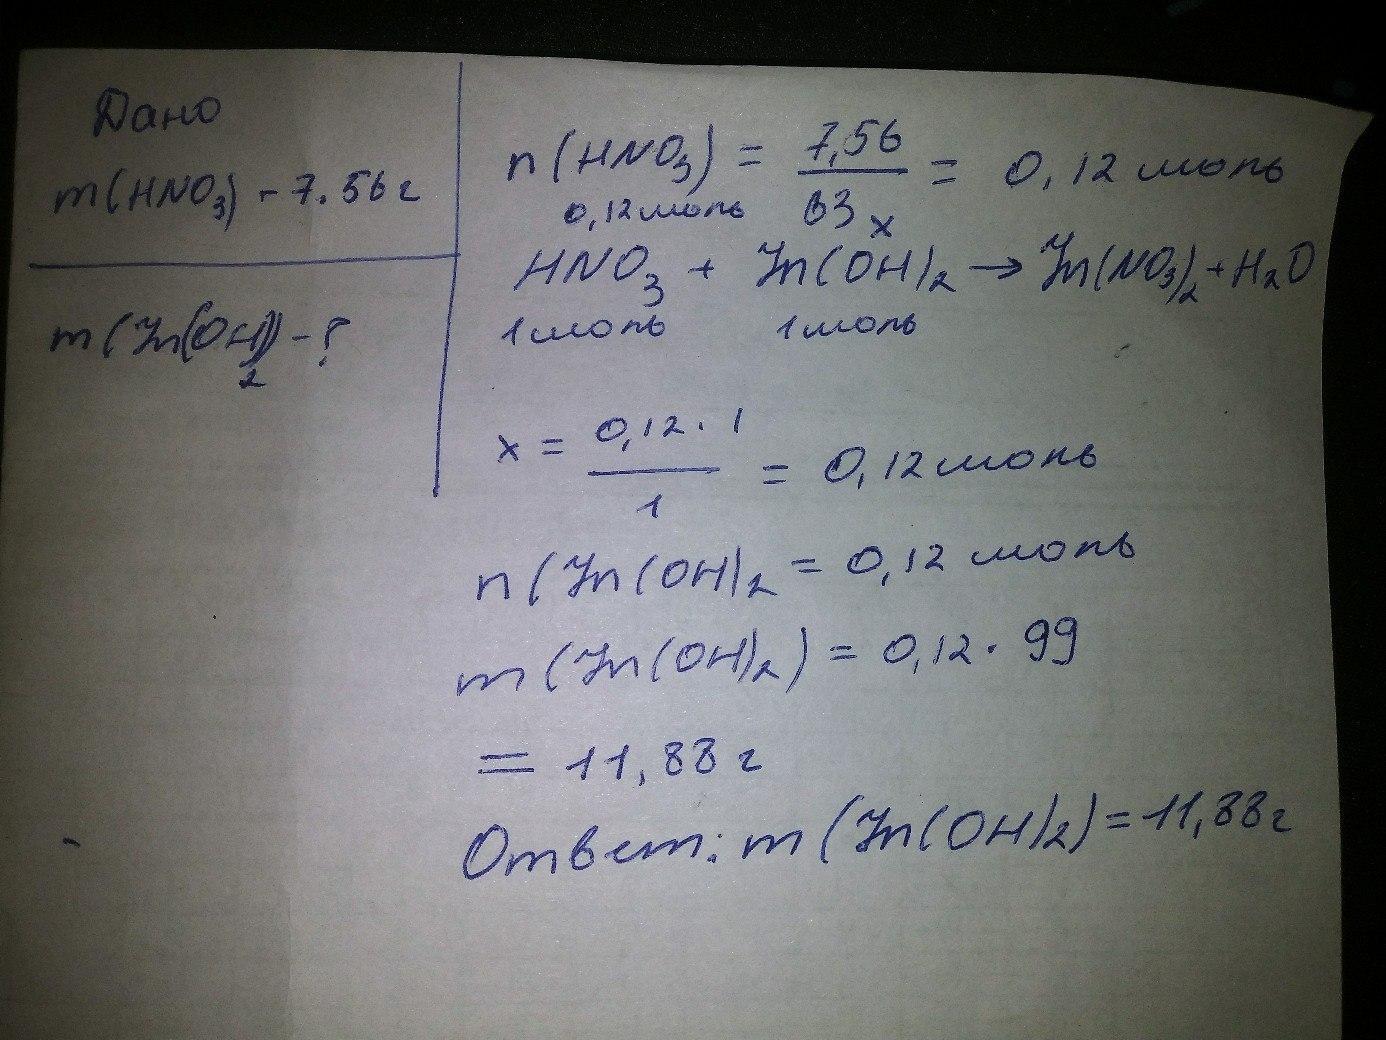 Дано
m(HNO3) - 7.56г
m(Zn(OH))2 - ?
n(HNO3) = 7,56 / 63 = 0,12 моль
0,12 моль x
HNO3 + Zn(OH)2 → Zn(NO3)2 + H2O
1 моль 1 моль
x = 0,12 · 1 / 1 = 0,12 моль
n(Zn(OH)2 = 0,12 моль
m(Zn(OH)2) = 0,12 · 99
= 11,88 г
Ответ: m(Zn(OH)2) = 11,88г